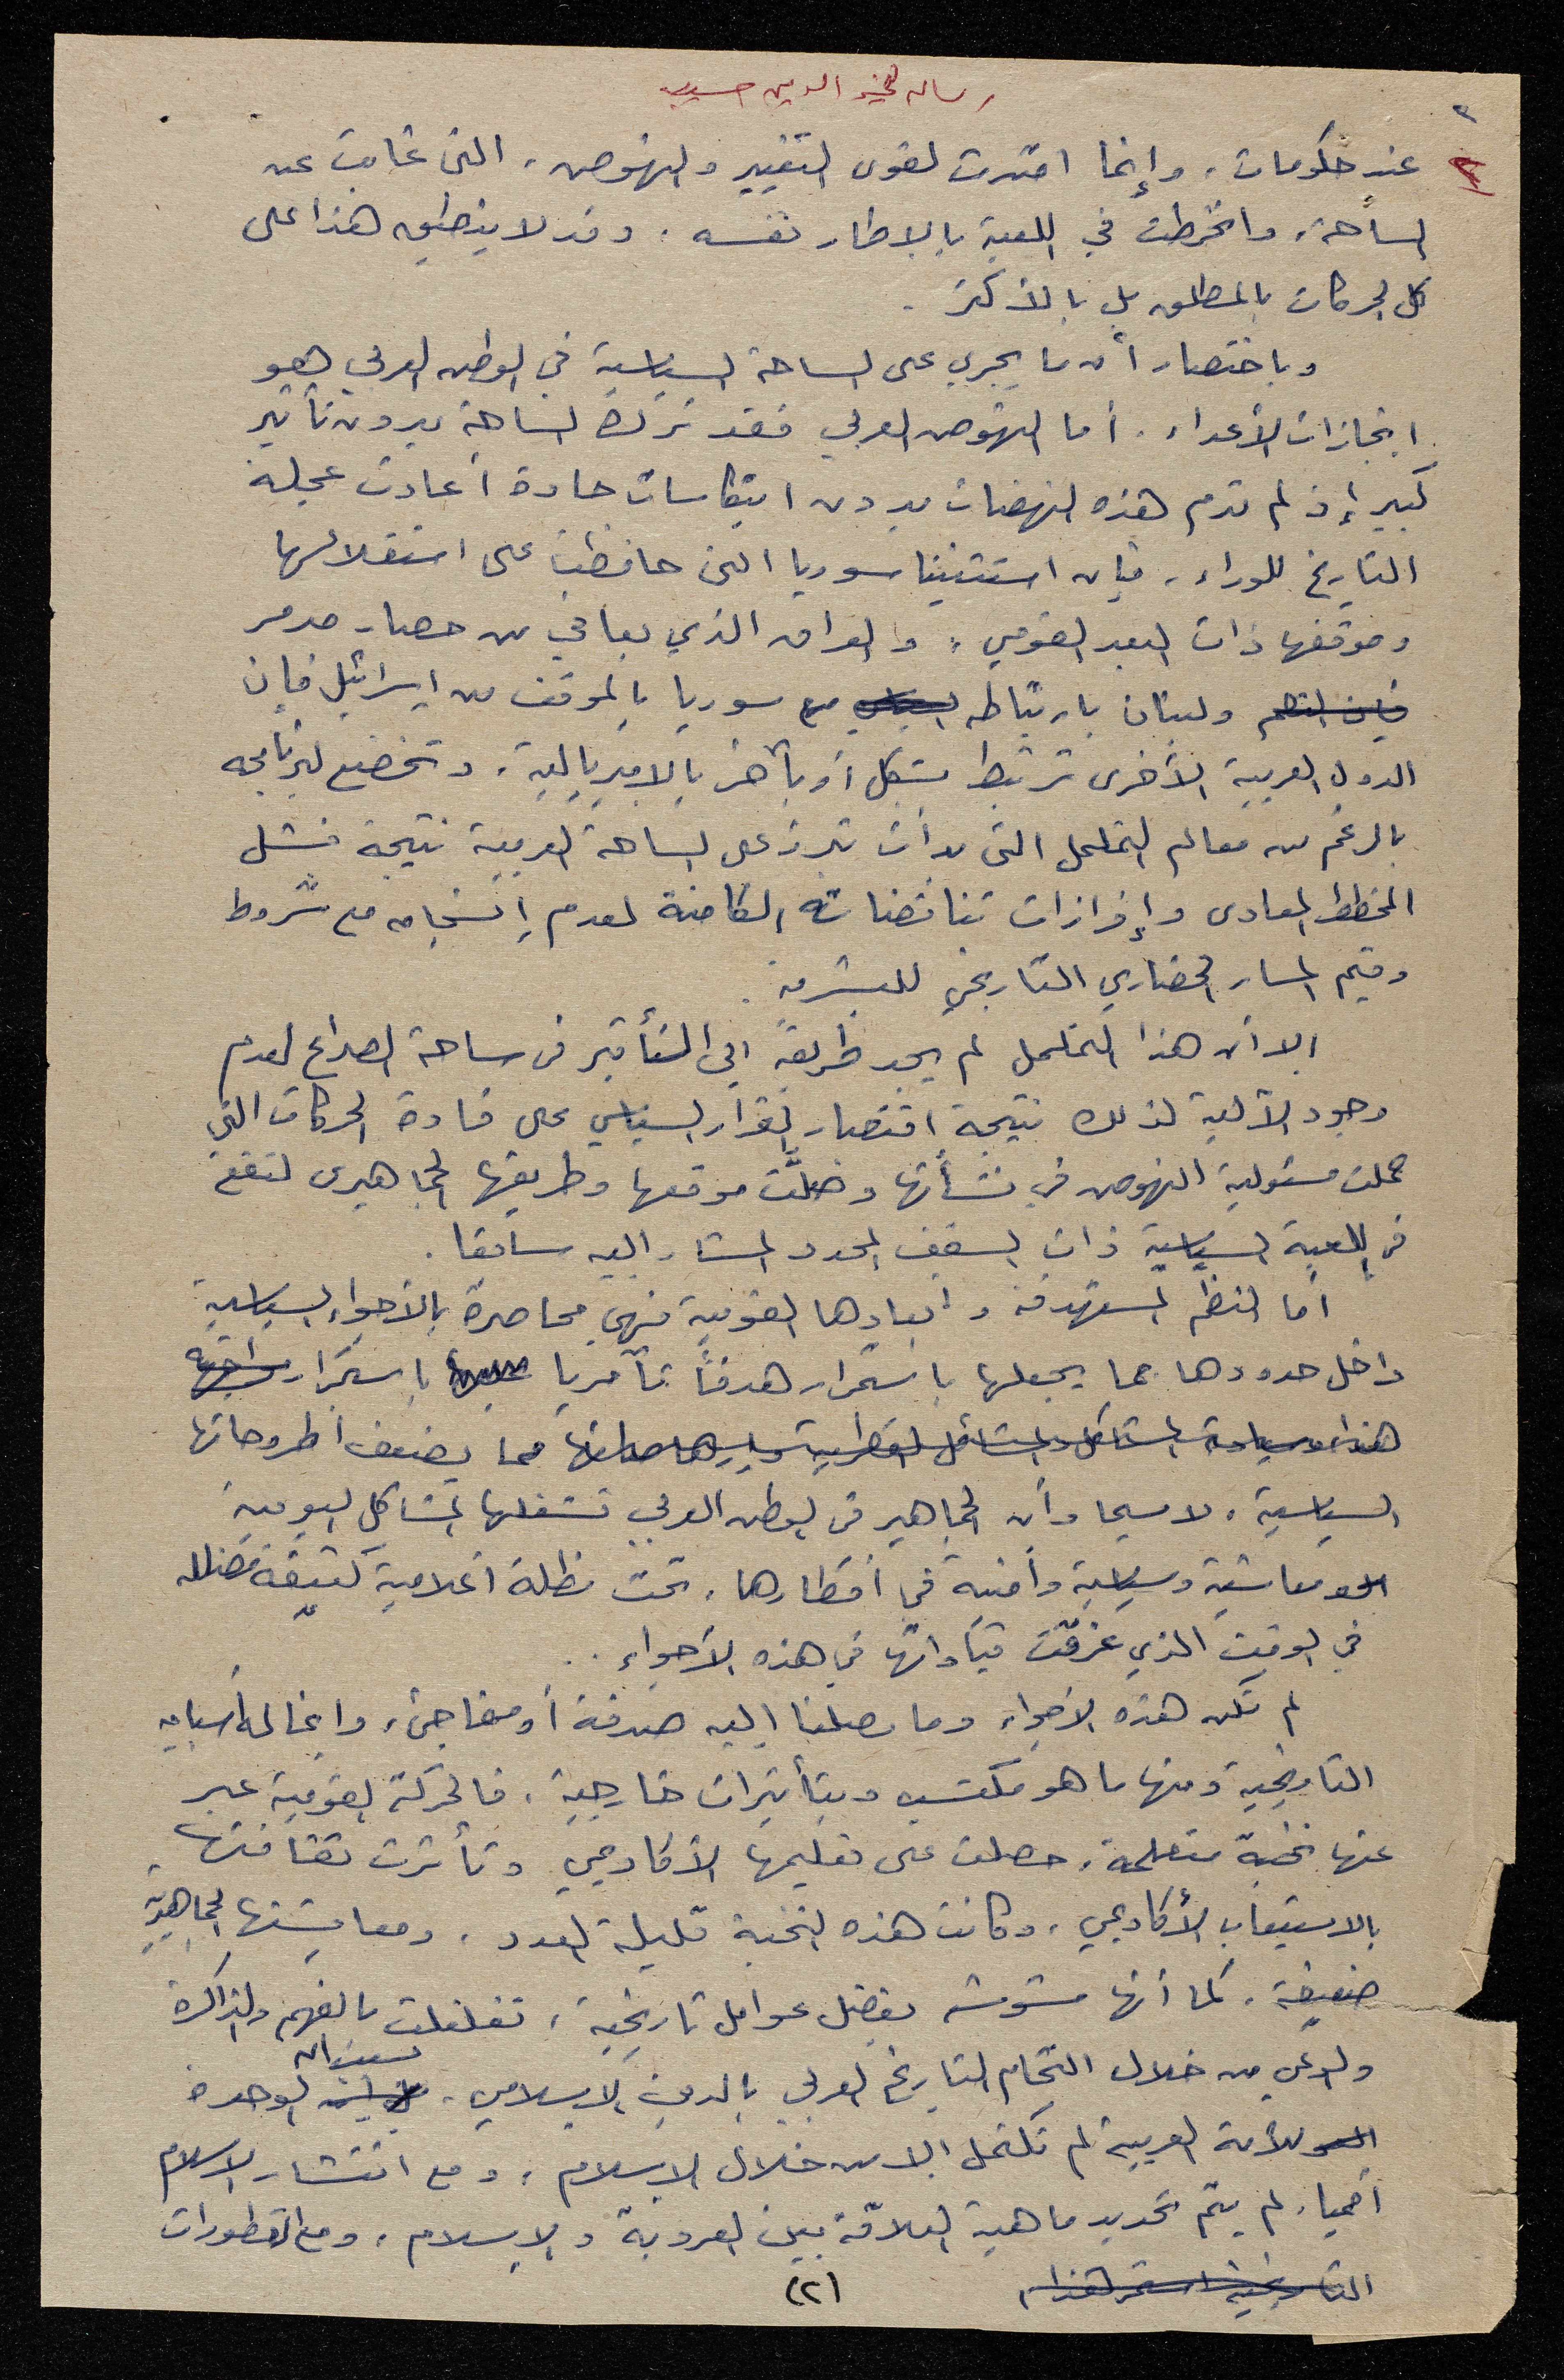 رسالة لخير الدين حسيب
٢
٣ عند حكومات، وإنما امتدت لقوى التغيير والنهوض، التي غابت عن
الساحة، وانخرطت في اللعبة بالاطار نفسه. وقد لا ينطبق هذا على
كل الحركات بالمطلق بل بالأكثر.
وباختصار أن ما يجري على الساحة السياسية في الوطن العربي هو
انجازات الأعداء. أما النهوض العربي فقد ترك الساحة بدون تأثير
كبير إذ لم تدم هذه النهضات بدون انتكاسات حادة أعادت عجلة
التاريخ للوراء، فإن استثنينا سوريا التي حافظت على استقلالها
وموقفها ذات البعد القومي، والعراق الذي يعاني من حصار مدمر
ولبنان بارتباطه مع سوريا بالموقف من اسرائيل فإن
الدول العربية الأخرى ترتبط بشكل أو بآخر بالامبريالية، وتخضع لبرنامجه
بالرغم من معالم التململ التي بدأت تبرز على الساحة العربية نتيجة فشل
المخطط المعادي وإفرازات تناقضاته الكامنة لعدم إنسجامه مع شروط
وقيم المسار الحضاري التاريخي للبشرية.
الا أن هذا التململ لم يجد طريقه إلى التأثير في ساحة الصراع لعدم
وجود الآلية لذلك نتيجة اقتصار القرار السياسي على قادة الحركات التي
حملت مسئولية النهوض في نشأتها وضلَّت موقعها وطريقها الجماهيري لتقع
في اللعبة السياسية ذات السقف المحدد المشار اليه سابقا.
أما النظم المستهدفة وابعادها القومية فهي محاصرة بالأجواء السياسية
داخل حدودها مما يجعلها باستمرار هدفاً تآمريا باستمرار
مما يضعف أطروحاتها
السياسية، لا سيما وأن الجماهير في الوطن العربي تشغلها المشاكل اليومية
معاشية وسياسية وأمنية في أقطارها، تحت مظلة اعلامية كثيفة مضللة
في الوقت الذي غرقت قياداتها في هذه الأجواء..
لم تكن هذه الأجواء وما وصلنا إليه صدفة أو مفاجئ، وانما له أسبابه
التاريخية ومنها ما هو مكتسب وبتأثيرات خارجية، فالحركة القومية عبر
عنها نخبة متعلمة، حصلت على تعليمها الأكاديمي وتأثرت ثقافتها
بالاستيعاب الأكاديمي، وكانت هذه النخبة قليلة العدد، ومعايشتها الجماهيرية
ضعيفة، كما أنها مشوشة بفضل عوامل تاريخية، تغلغلت بالفهم والذاكرة
والوعي من خلال التحام التاريخ العربي بالدين الاسلامي، الوحدة
للأمة العربية لم تكتمل إلا من خلال الإسلام، ومع انتشار الاسلام
أمميا، لم يتم تحديد ماهية العلاقة بين العروبة والإسلام، ومع التطورات
التاريخية استمر هذا
(٢)